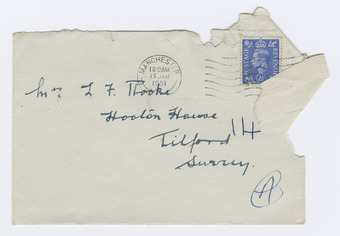 MANCHESTER
10 15AM
15 JAN
1951
POSTAGE REVENUE
2½D
Mrs L F. Rooke
Hooton House
Tilford 14
Surrey.
A